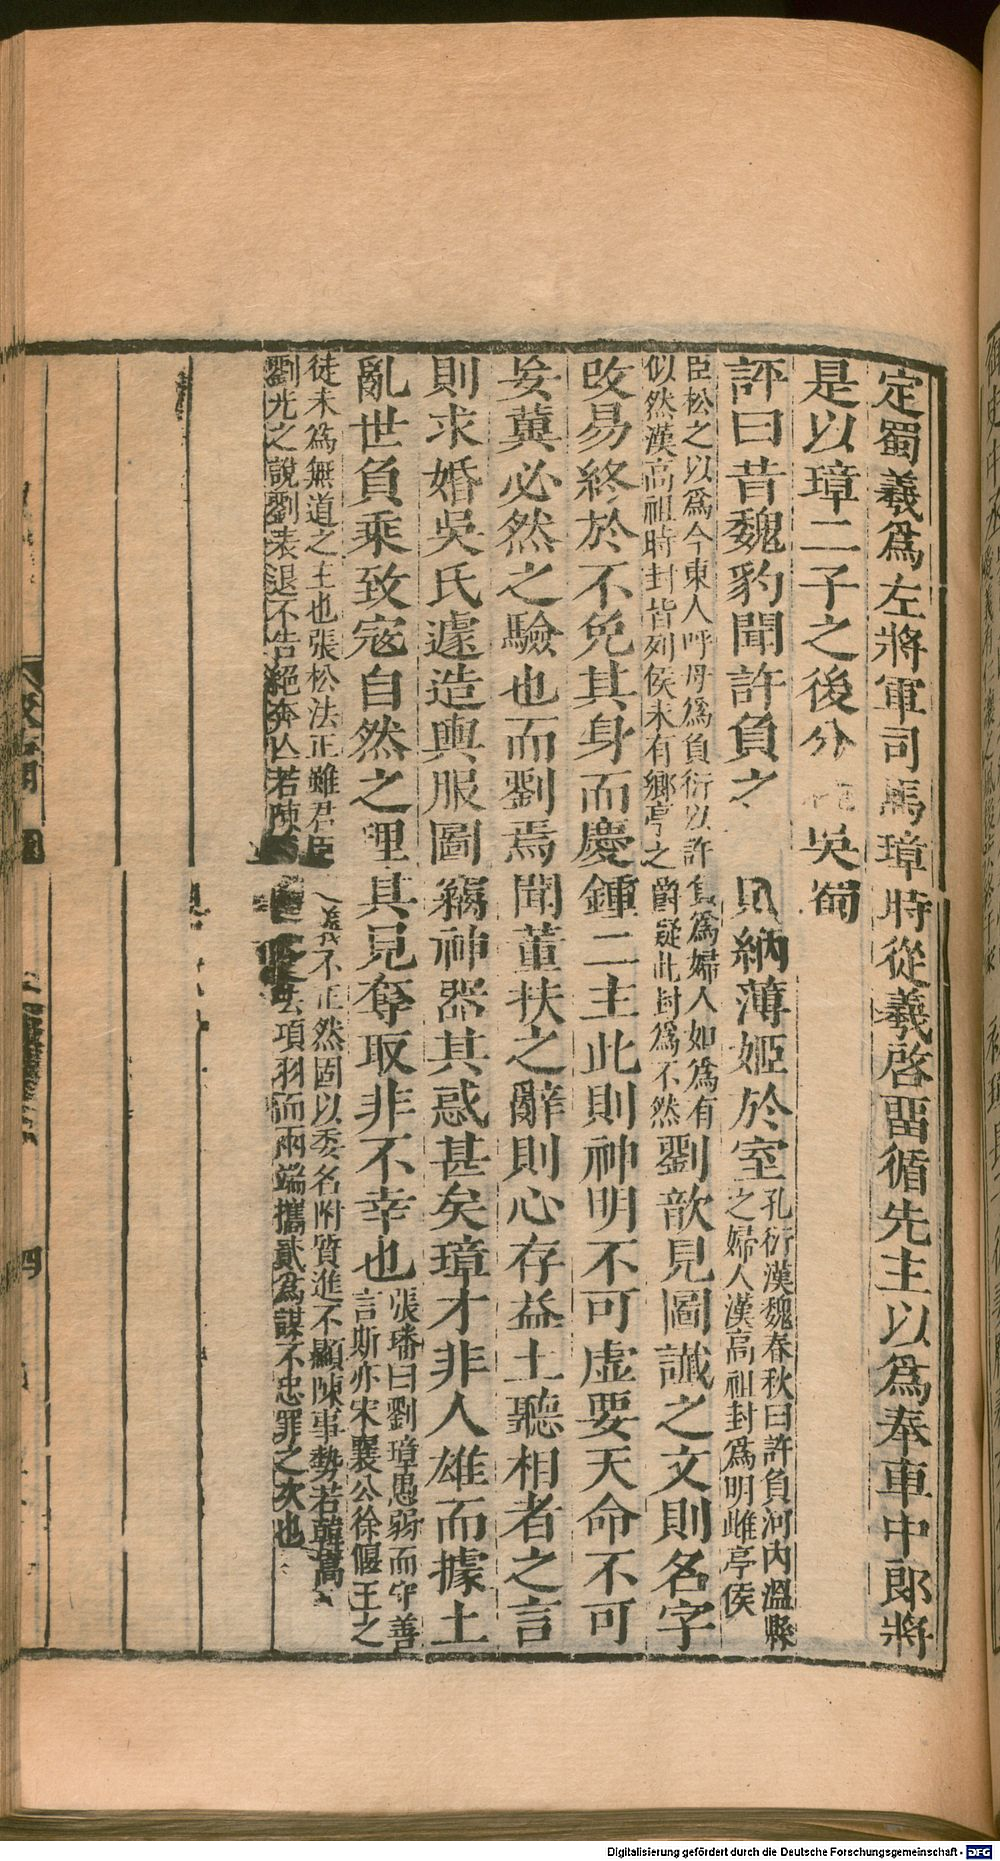 定蜀羲爲左將軍司馬璋時從羲啓畱循先主以爲奉車中郎將
是以璋二子之後分 吳蜀
評曰昔魏豹聞許負之 則納薄姬於室孔衍漢魏春秋曰許負河內溫縣
之婦人漢高祖封爲明雌亭侯
臣松之以爲今東人呼母爲負衍以許負爲婦人如爲有
似然漢高祖時封皆列侯未有鄉亭之爵疑此封爲不然劉歆見圖讖之文則名字
改易終於不免其身而慶鍾二主此則神明不可虛要天命不可
妄冀必然之驗也而劉焉聞董扶之辭則心存益土聽相者之言
則求婚吳氏遽造輿服圖竊神器其惑甚矣璋才非人雄而據土
亂世負乘致寇自然之理其見奪取非不幸也張璠曰劉璋愚弱而守善
言斯亦宋襄公徐偃王之
徒未爲無道之主也張松法正雖君臣 義不正然固以委名附質進不顯陳事勢若韓嵩
劉光之說劉表退不告絕奔亾若陳 去項羽而兩端攜貳爲謀不忠罪之次也
四
Digitalisierung gefördert durch die Deutsche Forschungsgemeinschaft - DFG